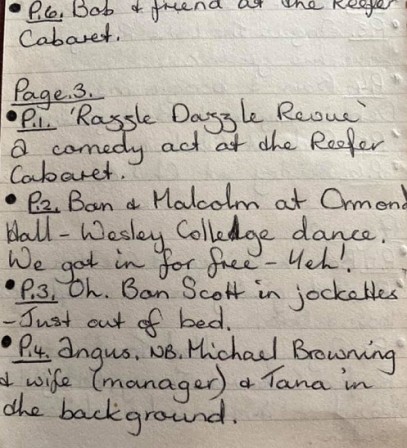 • P.6. Bob & friend at the Reefer
Cabaret.
Page.3.
• P.1. 'Razzle Dazzle Revue'
a comedy act at the Reefer
Cabaret.
• P.2. Bon & Malcolm at Ormond
Hall - Wesley Colledge dance.
We got in for free - Yeh!.
• P.3. Oh. Bon Scott in jockettes
- Just out of bed.
• P.4. Angus. NB. Michael Browning
& wife (manager) & Tana in
the background.